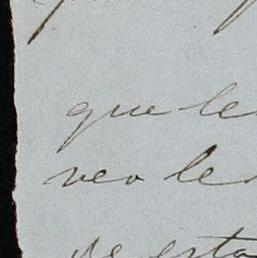 que le
veo le
de esta